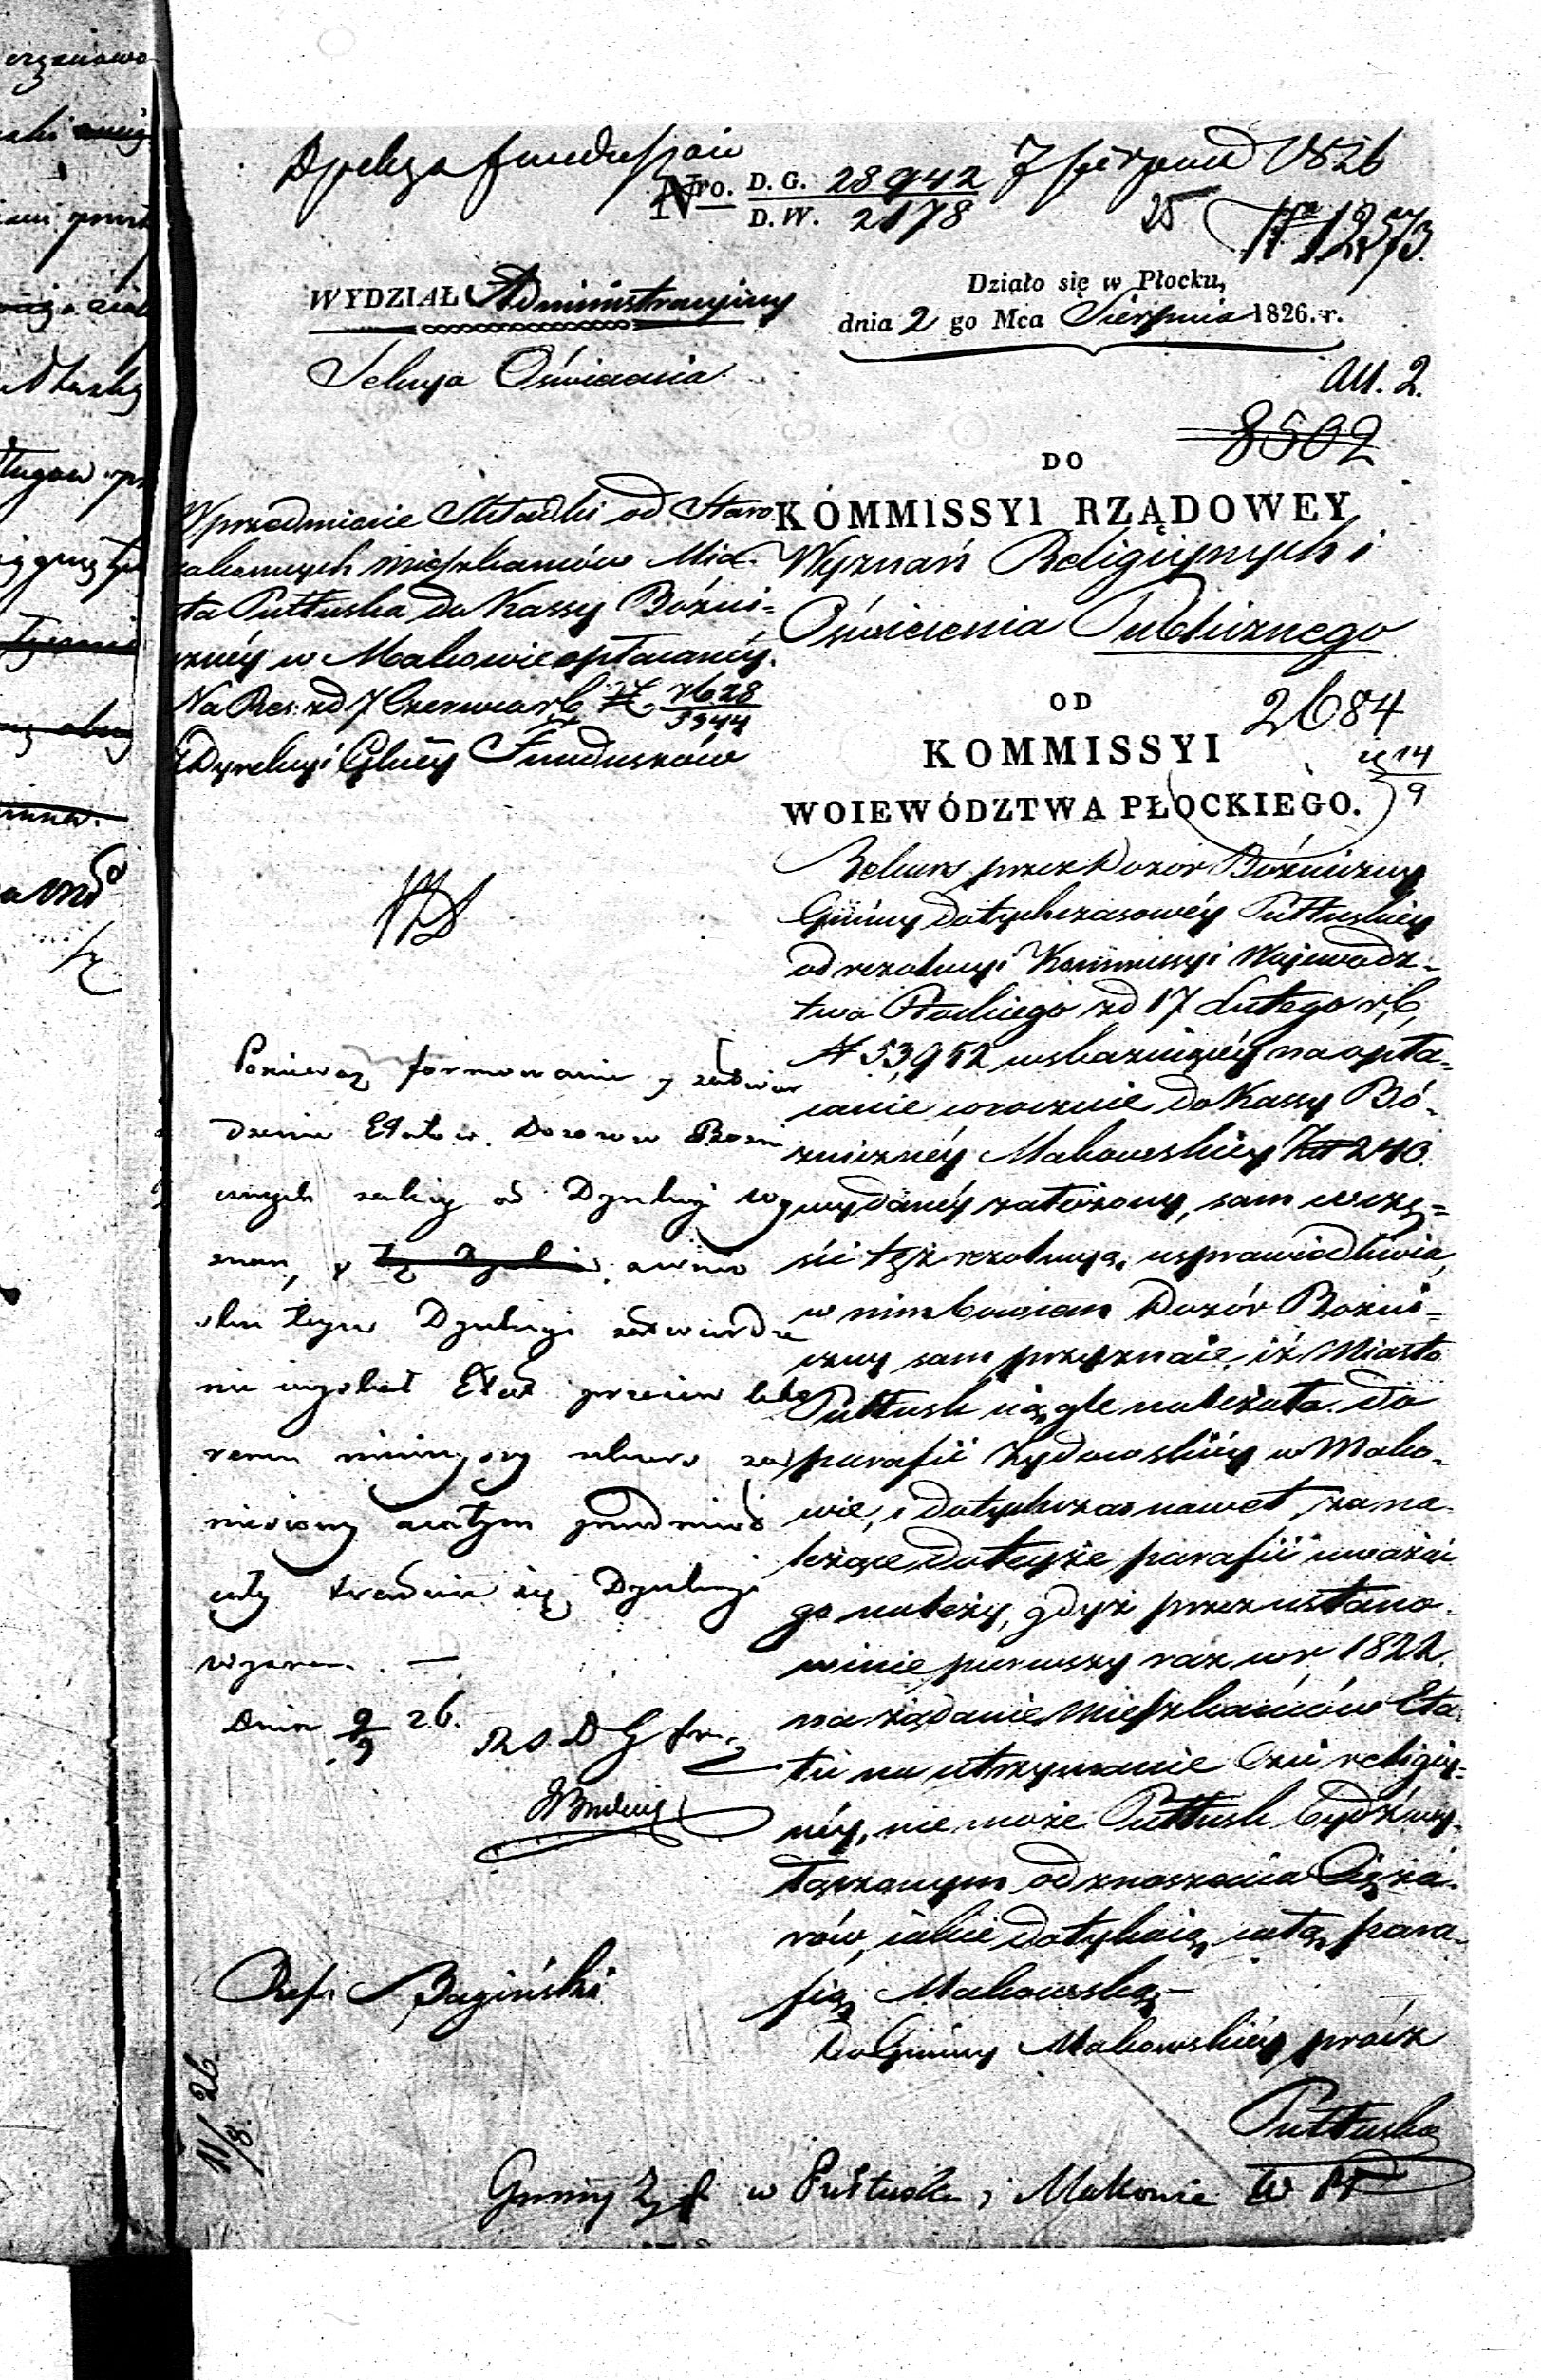 7 Sierpnia 1826
Nro. D. G. 28942
D. W. 2178
25
N 12573.
WYDZIAŁ Administracyiny
Sekcya Oświecenia
Działo się w Płocku,
dnia 2 go Mca Sierpnia 1826. r.
All. 2.
8502
W przedmiocie Składki od Staro
zakonnych mieszkańców Mia-
sta Pułtuska do Kassy Bożni=
cznéy w Makowie opłacanéy.
Na Res: zd 7 Czerwca r b N 7628
3944
Dyrekcyi Głnéy Funduszów
DO
KOMMISSYI RZĄDOWEY
Wyznań Religiynych i
Oświecenia Publicznego
OD
2684
KOMMISSYI
14
9
WOIEWÓDZTWA PŁOCKIEGO.
Rekurs przez Dozór Bóżniczny
Gminy dotychczasowéy Pułtuskiéy
od rezolucyi Kommissyi Wojewódz-
twa Płockiego zd 17 Lutego r. b,
N 53,952 wskazuiącéy na opła-
canie corocznie do Kassy Bó-
żnicznéy Makowskiéy Zł 240.
wydanéy założony, sam w czę=
ści tęż rezolucyą usprawiedliwia,
w nim bowiem Dozór Bożni=
czny sam przyznaie, iż Miasto
Pułtusk ciągle należało do
parafii Żydowskiéy w Mako-
wie, i dotychczas nawet, za na-
leżące do teyże parafii uważać
go należy, gdyż przez ustano-
wienie pierwszy raz w r 1822.
na żądanie Mieszkańców Eta-
tu na utrzymanie Czci religiy=
néy, nie może Pułtusk bydź wy-
łączonym od znoszenia Cięża-
rów, iakie dotykaią całą para-
fią Makowską.—
Do Gminy Makowskiéy prócz
Pułtuska
Ponieważ formowanie y zatwier
dzenie Etatów Dozorow Bożni
cznych zależy od Dyrekcyi Wy
znań, y
skutek tegoż Dyrekcyi zatwierdze
nie uzyskał Etat przeciw któ
remu niniejszy rekurs za
niesiony
cały Dyrekcyi
wyznań. —
Dnia 9/9 26.
Ref: Bagiński
11/8 26.
Gminy Żyd w Pułtusku i Makowie W P